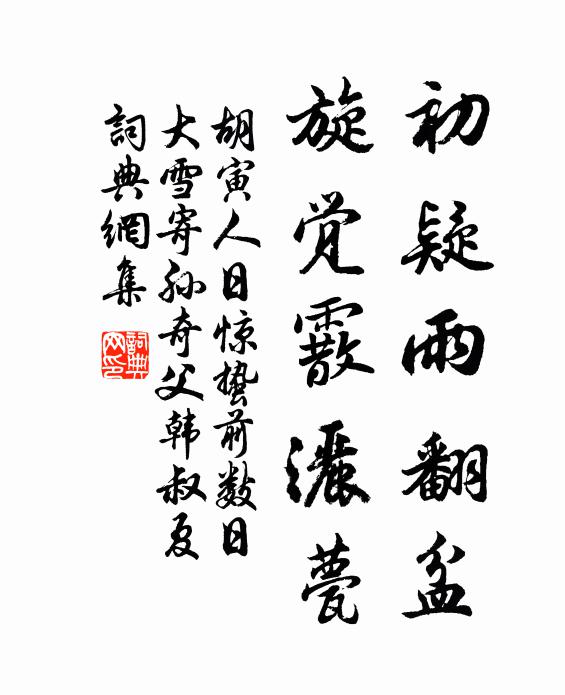 初疑雨翻盆
旋觉霰灑甍
胡寅人日惊蛰前数日
大雪寄孙奇父韩叔夏
詞典網集
詞典